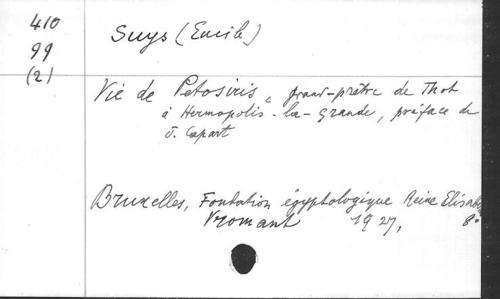 410
99
(2)
Suys (Emile)
Vie de Petosiris, grand-prêtre de Thot
à Hermopolis-la-grande, préface de
J. Capart
Bruxelles, Fondation égyptologique Reine Elisabeth
Vromant 1927, 8°